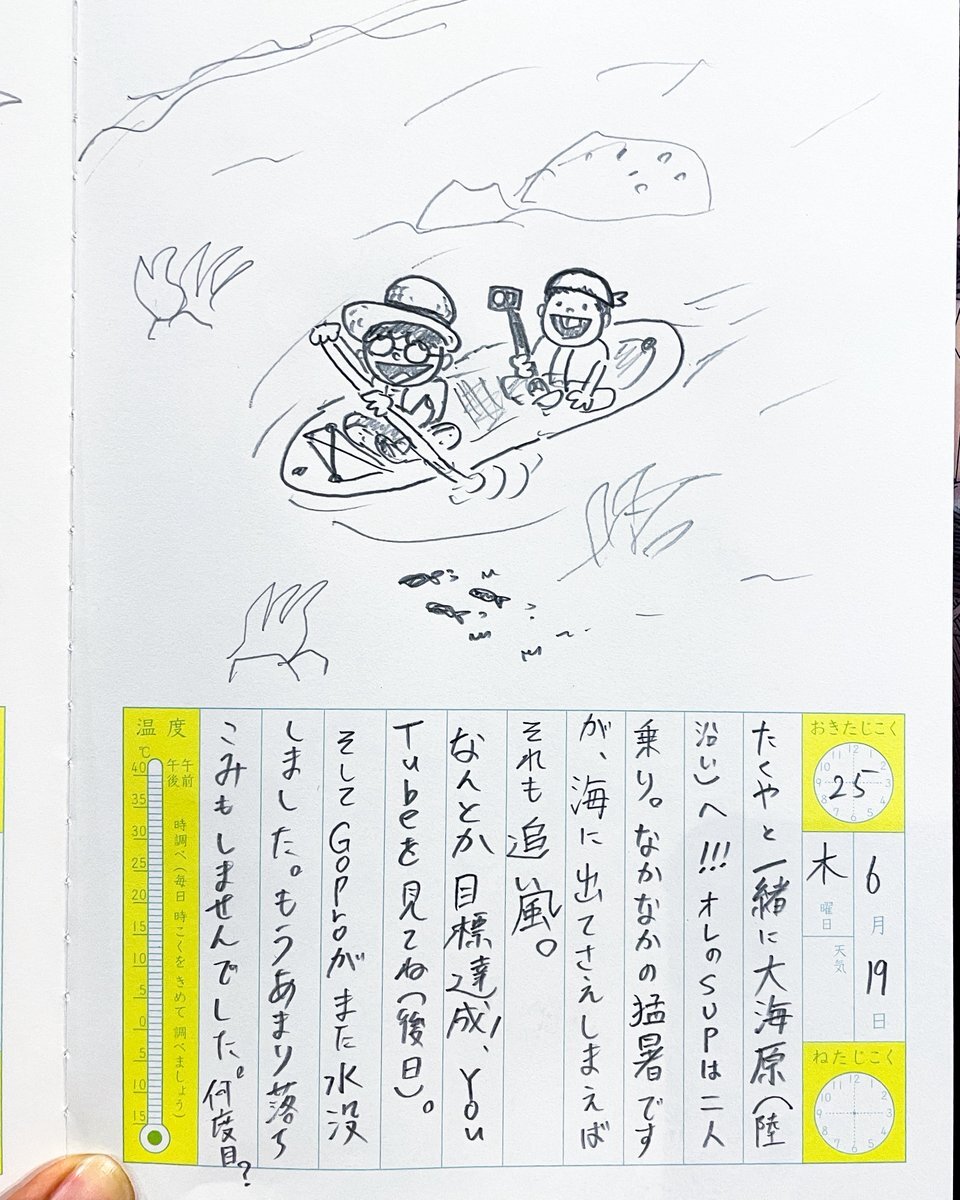 おきたじこく
25
6月19日
木曜日
天気
ねたじこく
たくやと一緒に大海原(陸
沿い)へ!!!オレのSUPは二人
乗り。なかなかの猛暑です
が、海に出てさえしまえば
それも追い風。
なんとか目標達成!、You
Tubeを見てね(後日)。
そしてGoProがまた水没
しました。もうあまり落ち
こみもしませんでした。何度目?
温度
℃
午前
午後
時調べ(毎日 時こくを きめて 調べましょう)
40
35
30
25
20
15
10
5
0
5
10
15